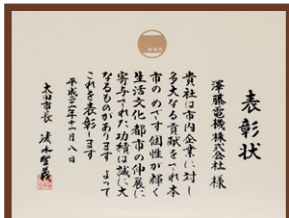 表彰状
澤藤電機株式会社 様
貴社は市内企業に対し
多大なる貢献をされ本
市のめざす個性が輝く
生活文化都市の伸展に
寄与された功績は誠に大
なるものがあります よって
これを表彰します
平成二十二年十一月八日
太田市長 清水聖義